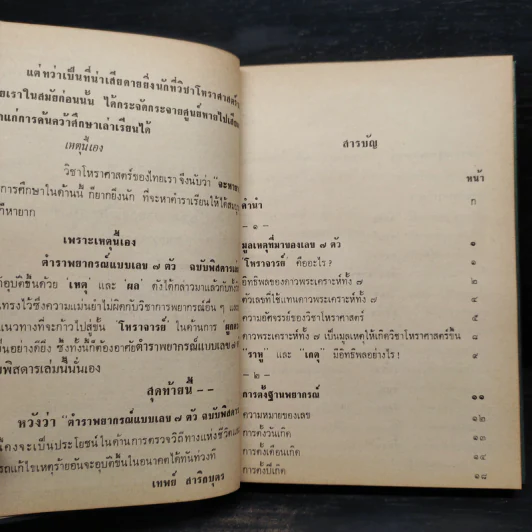 แต่ทว่าเป็นที่น่าเสียดายยิ่งนักที่วิชาโหราศาสตร์
ยเราในสมัยก่อนนั้น ได้กระจัดกระจายสูญหายไปเสีย
าแก่การค้นคว้าศึกษาเล่าเรียนได้
เหตุนี้เอง
วิชาโหราศาสตร์ของไทยเรา จึงนับว่า "จะหา
การศึกษาในด้านนี้ ก็ยากยิ่งนัก ที่จะหาตำราเรียนให้ได้
ก็หายาก
เพราะเหตุนี้เอง
ตำราพยากรณ์แบบเลข ๗ ตัว ฉบับพิสดาร
ได้อุบัติขึ้นด้วย 'เหตุ' และ 'ผล' ดังได้กล่าวมาแล้ว
ทรงไว้ซึ่งความแม่นยำไม่ผิดกับวิชาการพยากรณ์อื่น ๆ และ
แนวทางที่จะก้าวไปสู่ขั้น 'โหราจารย์' ในด้านการ
ป็นอย่างดียิ่ง ซึ่งทั้งนี้ก็ต้องอาศัยตำราพยากรณ์แบบเลข ๗
พิสดารเล่มนี้นั่นเอง
สุดท้ายนี้ – –
หวังว่า "ตำราพยากรณ์แบบเลข ๗ ตัว ฉบับพิสดาร
คงจะเป็นประโยชน์ในด้านการตรวจวิถีทางแห่งชีวิต
รถแก้ไขเหตุร้ายอันจะอุบัติขึ้นในอนาคตได้ทันท่วงที
เทพย์ สาริกบุตร
สารบัญ
หน้า
คำนำ ก
– ๑ –
มูลเหตุที่มาของเลข ๗ ตัว ๑
'โหราจารย์' คืออะไร ? ๑
อิทธิพลของดาวพระเคราะห์ทั้ง ๗
ตัวเลขที่ใช้แทนดาวพระเคราะห์ทั้ง ๗
ความอัศจรรย์ของวิชาโหราศาสตร์
ดาวพระเคราะห์ทั้ง ๗ เป็นมูลเหตุให้เกิดวิชาโหราศาสตร์ขึ้น ๘
"ราหู" และ "เกตุ" มีอิทธิพลอย่างไร ! ๙
– ๒ –
การตั้งฐานพยากรณ์ ๑๑
ความหมายของเลข ๑๒
การตั้งวันเกิด ๑๓
การตั้งเดือนเกิด ๑๔
การตั้งปีเกิด ๑๘